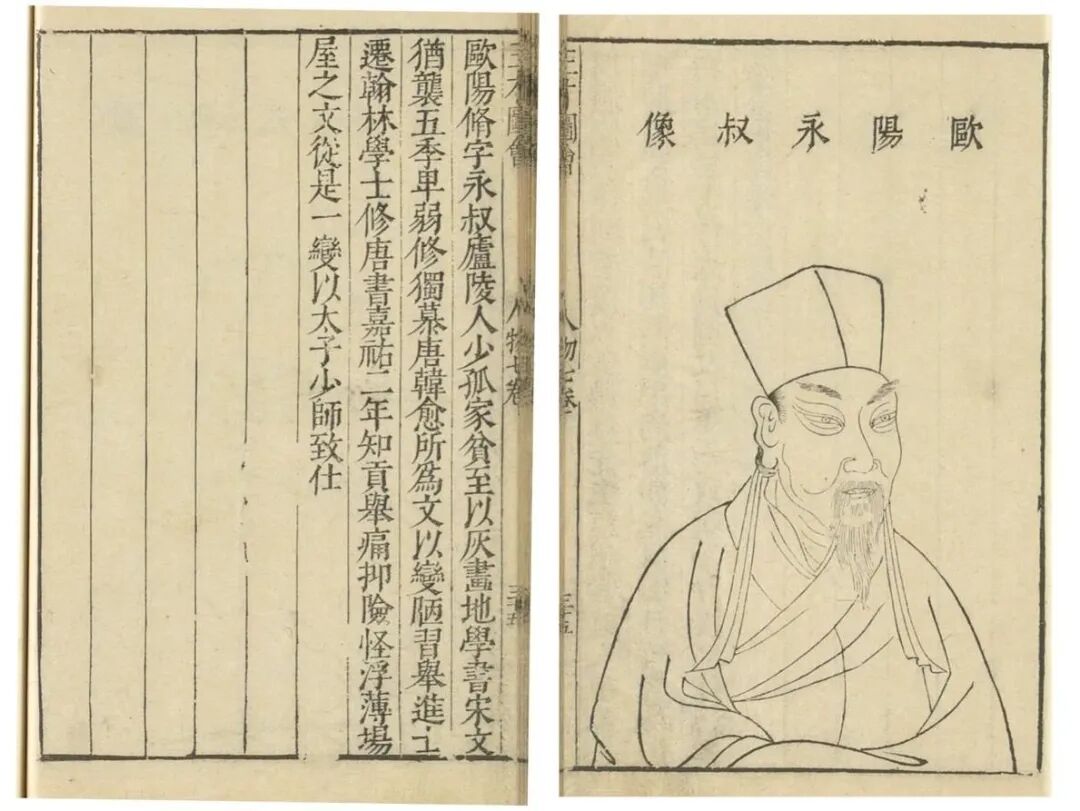 歐陽永叔像
三才圖會
人物七卷
三十五
三才圖會
人物七卷
三十五
歐陽脩字永叔廬陵人少孤家貧至以灰畫地學書宋文
猶襲五季卑弱修獨慕唐韓愈所爲文以變陋習舉進士
遷翰林學士修唐書嘉祐二年知貢舉痛抑險怪浮薄場
屋之文從是一變以太子少師致仕